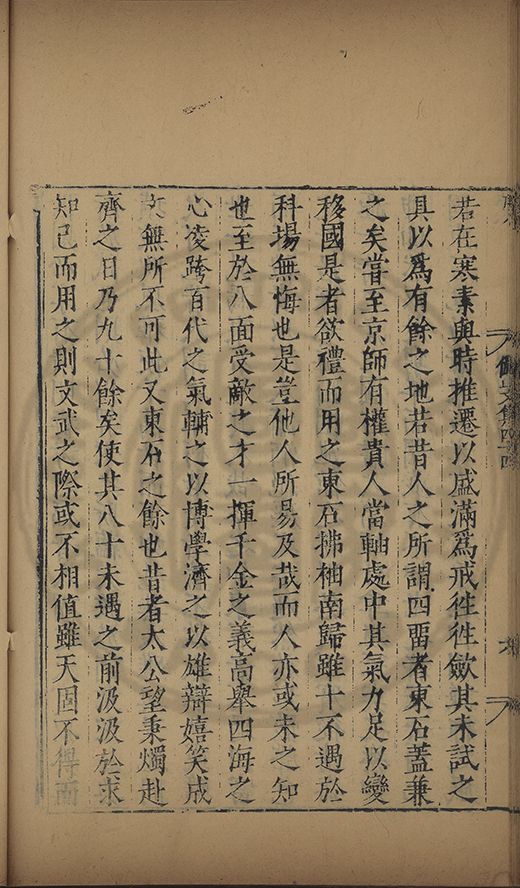 若在寒素與時推遷以盛滿為戒徃徃歛其未試之
具以爲有餘之地若昔人之所謂四畱者東石葢兼
之矣嘗至京師有權貴人當軸處中其氣力足以變
移國是者欲禮而用之東石拂袖南歸雖十不遇於
科場無悔也是豈他人所易及哉而人亦或未之知
也至於八面受敵之才一揮千金之義高舉四海之
心凌跨百代之氣輔之以博學濟之以雄辯嬉笑成
文無所不可此又東石之餘也昔者太公望秉燭赴
齊之日乃九十餘矣使其八十未遇之前汲汲於求
知己而用之則文武之際或不相值雖天固不得而